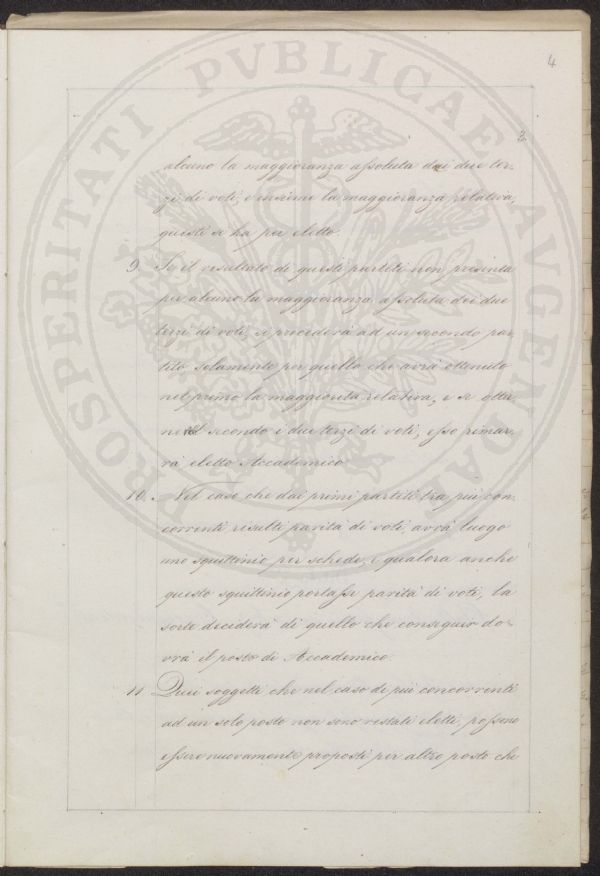 4
2
PROSPERITATI PVBLICAE AVGENDAE
alcuno la maggioranza assoluta dei due ter-
zi di voti, e insieme la maggioranza relativa,
questi si ha per eletto.
9. Se il resultato di questi partiti non presenta
per alcuno la maggioranza assoluta dei due
terzi di voti, si procederà ad un secondo par-
tito solamente per quello che avrà ottenuto
nel primo la maggiorità relativa, e se otter-
nel secondo i due terzi di voti, esso rimar-
rà eletto Accademico.
10. Nel caso che dai primi partiti tra più con-
correnti resulti parità di voti, avrà luogo
uno squittinio per schede, e qualora anche
questo squittinio portasse parità di voti, la
sorte deciderà di quello che conseguir do-
vrà il posto di Accademico.
11 Quei soggetti che nel caso di più concorrenti
ad un solo posto non sono restati eletti, possono
essere nuovamente proposti per altro posto che